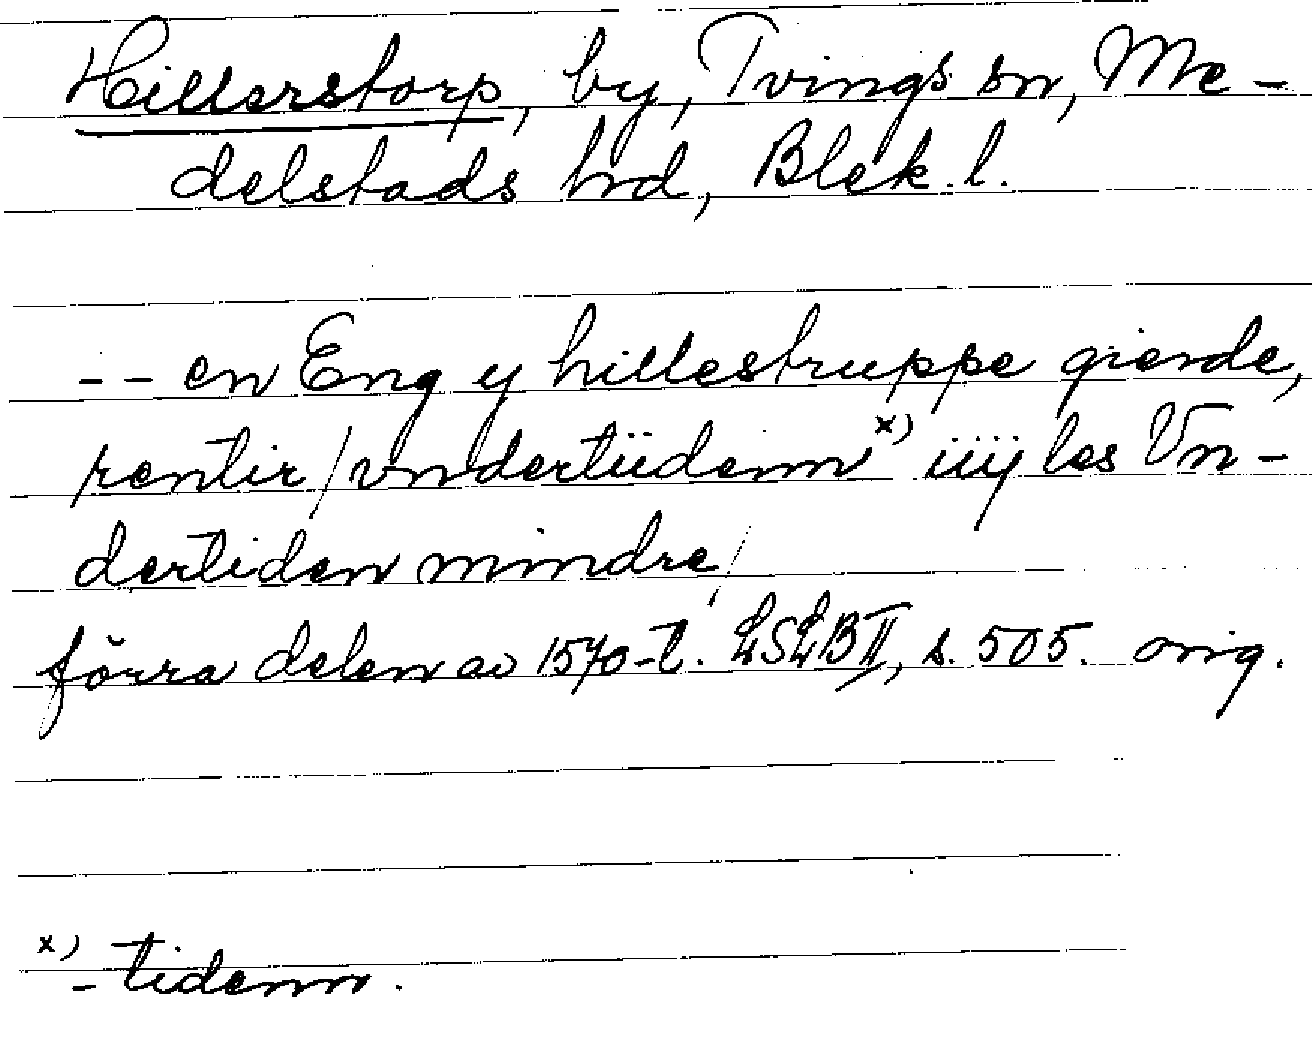 Hillerstorp, by, Tvings sn, Me-
delstads hrd, Blek. l.
-- en Eng y hillestruppe gierde,
rentir / vndertiidenn x) iiij les Vn-
dertiden mindre /
förra delen av 1570-t. LSLB II, s. 505. orig.
x) -tidenn.